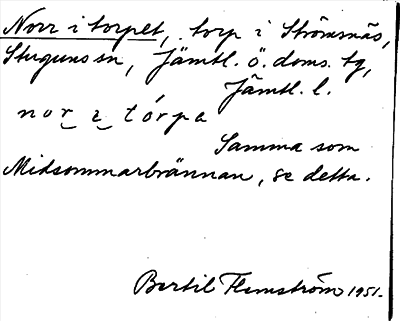 Norr i torpet, torp i Strömsnäs,
Stuguns sn, Jämtl. ö. doms. tg,
Jämtl. l.
nor i tórpa
Samma som
Midsommarbrännan, se detta.
Bertil Flemström 1951.